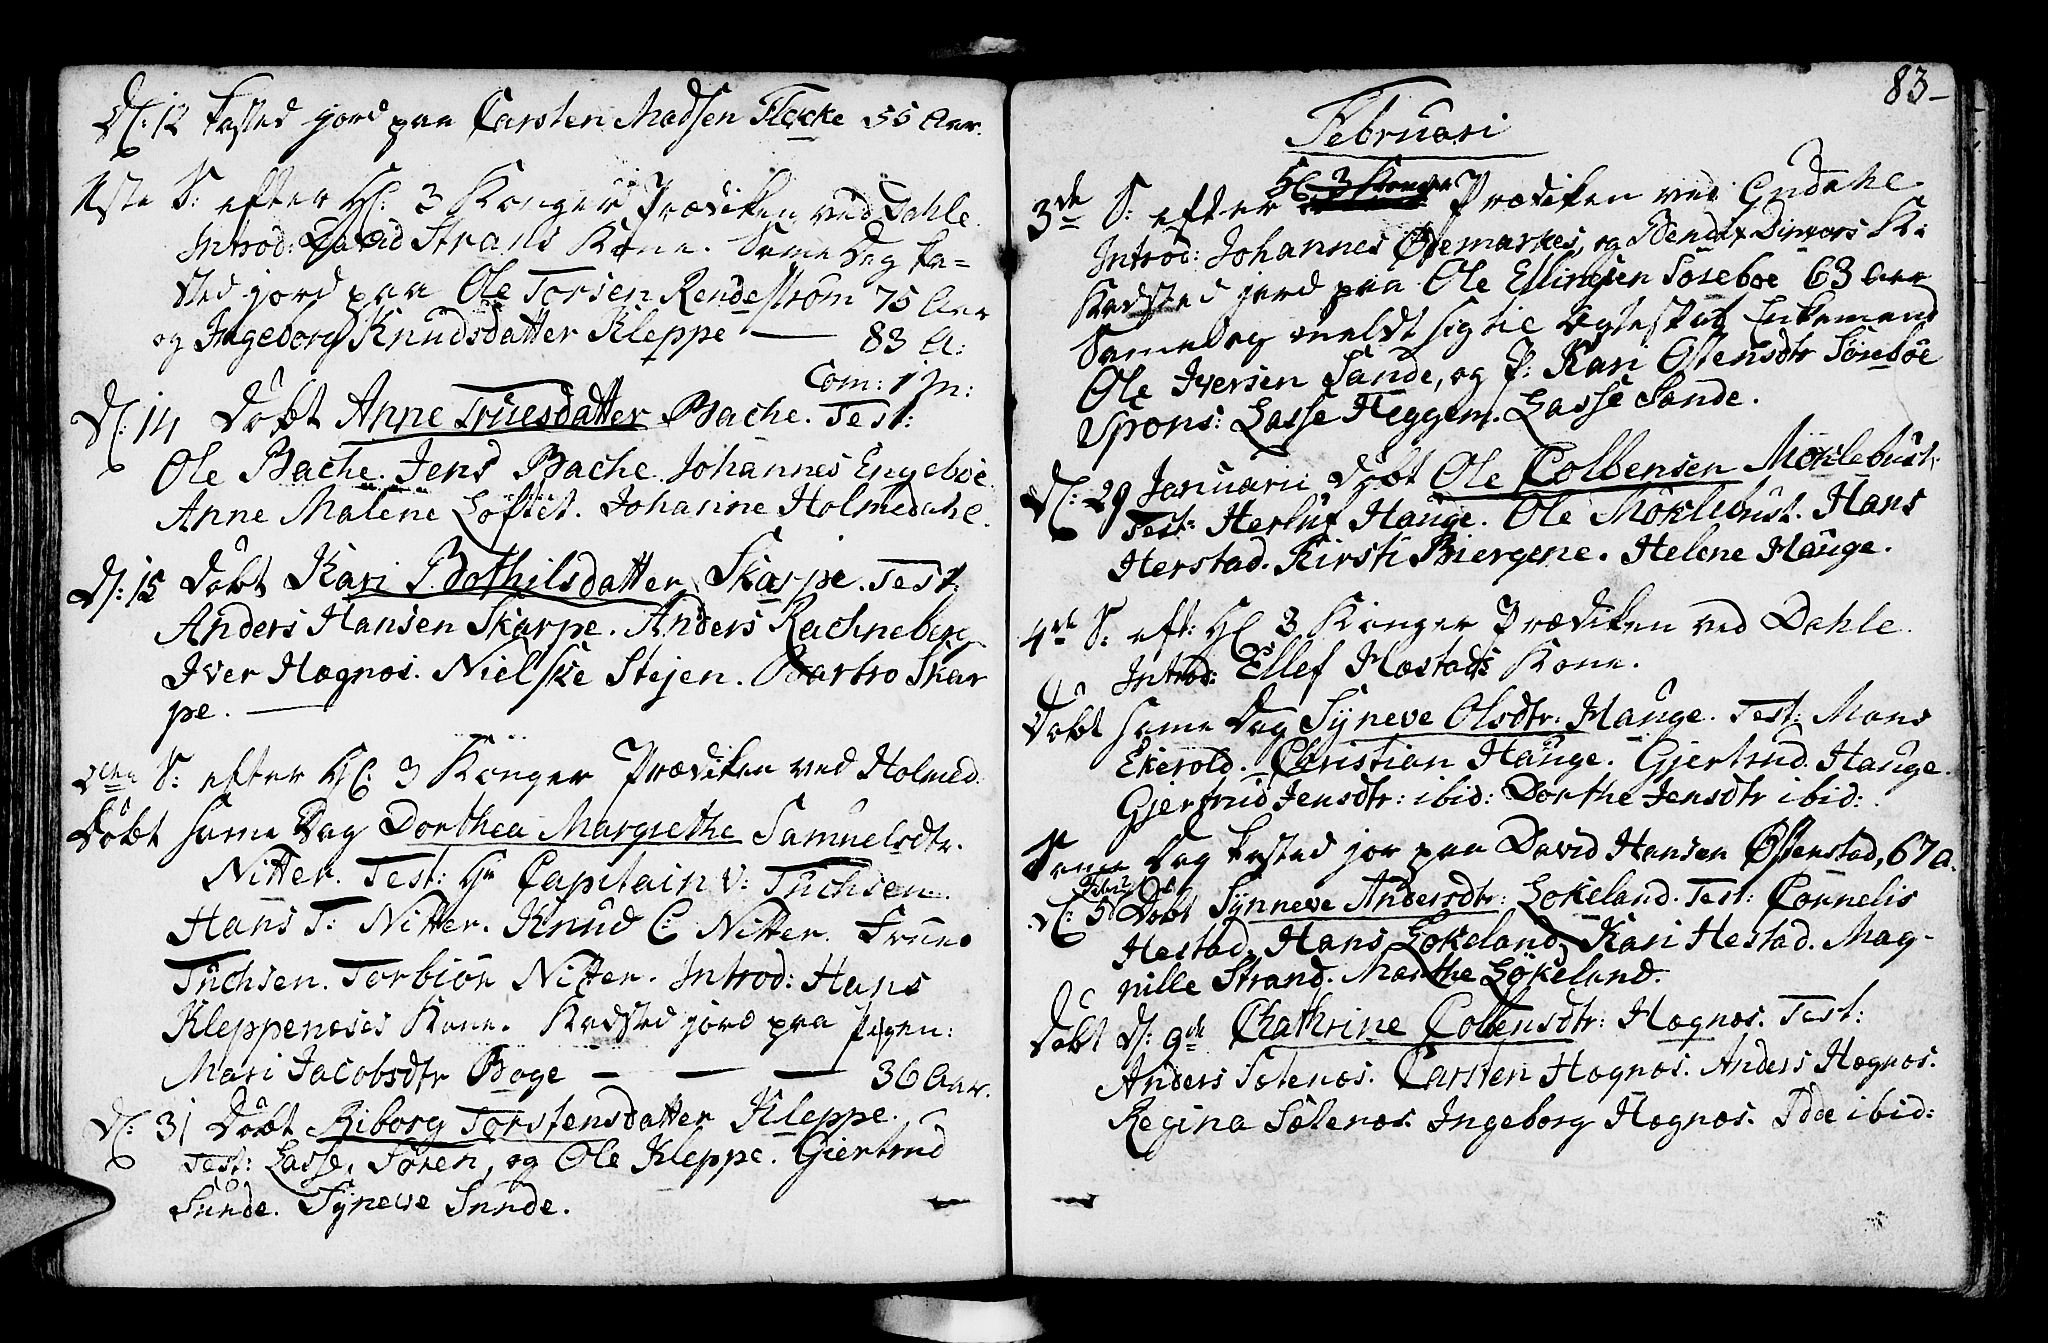 D: 12 kasted jord paa Carsten Madsen Flecke 55 Aar.
1ste S: efter H: 3 Konger Prædiken ved Dahle.
Introd: David Strans Kone. Same Dag ka=
sted jord paa Ole Torsen Rendestrøm 75 Aar
og Ingeborg Knudsdatter Kleppe — 83 A:
Com: 1 M:
D: 14 Døbt Anne Truesdatter Bache. Test:
Ole Bache. Jens Bache. Johannes Engeboe.
Anne Malene Løftet. Johanne Holmedahl.
D: 15 Døbt Kari Bothilsdatter Skarpe. Test
Anders Hansen Skarpe. Anders Rachneberg
Iver Hægnøs. Nielske Stejen. Skar
pe. —
2den S: efter H: 3 Konger Prædiken ved Holmed.
Døbt same Dag Dorthea Margrethe Samuelsdtr.
Nitter. Test: Hr Capitain v: Tuchsen.
Hans T: Nitter. Knud C: Nitter. Frue
Tuchsen. Torbiør Nitter. Introd: Hans
Kleppenæses Kone. Kasted jord paa Pigen:
Mari Jacobsdtr Boge — — — 36 Aar.
D: 31 Døbt Riborg Torstensdatter Kleppe.
Test: Lasse, Søren, og Ole Kleppe. Giertrud
Sunde. Syneve Sunde.
83-
Februari
3de S: efter H: 3 Konger Prædiken ved Endahle
Introd: Johannes Øremarkes, og Bendix K:
Kasted jord paa Ole Ellingsen Søreboe 63 Aar
Same Dag meldt sig til Ægteskab Enkemand
Ole Iversen Sande, og P: Kari Olsensdtr Sørebøe
Spons: Lasse Heggem. Lasse Sande.
D: 29 Januarii Døbt Ole Colbensen Møklebust.
Test: Herluf Hauge. Ole Møklebust. Hans
Herstad. Kirsti Biergene. Helene Hauge.
4de S: eft: H: 3 Konger Prædiken ved Dahle.
Introd: Ellef Næstads Kone.
Døbt same Dag Syneve Olsdtr. Hauge. Test: Mons
Ekerold. Christian Hauge. Gjertrud Hauge.
Gjertrud Jensdtr: ibid: Dorthe Jensdtr ibid:
Same Dag kasted jor paa David Hansen Østenstad, 67 a.
D: 5 Febr: Døbt Synneve Andersdtr: Løkeland. Test: Cornelis
Hestad. Hans Løkeland. Kari Hestad. Mag-
nille Strand. Marthe Løkeland.
Døbt D: 9de Chathrine Colbensdtr: Hægnøs. Test:
Anders Sælenøs. Carsten Hægnøs. Anders Hægnøs.
Regina Sælenøs. Ingeborg Hægnøs. Idæ ibid: